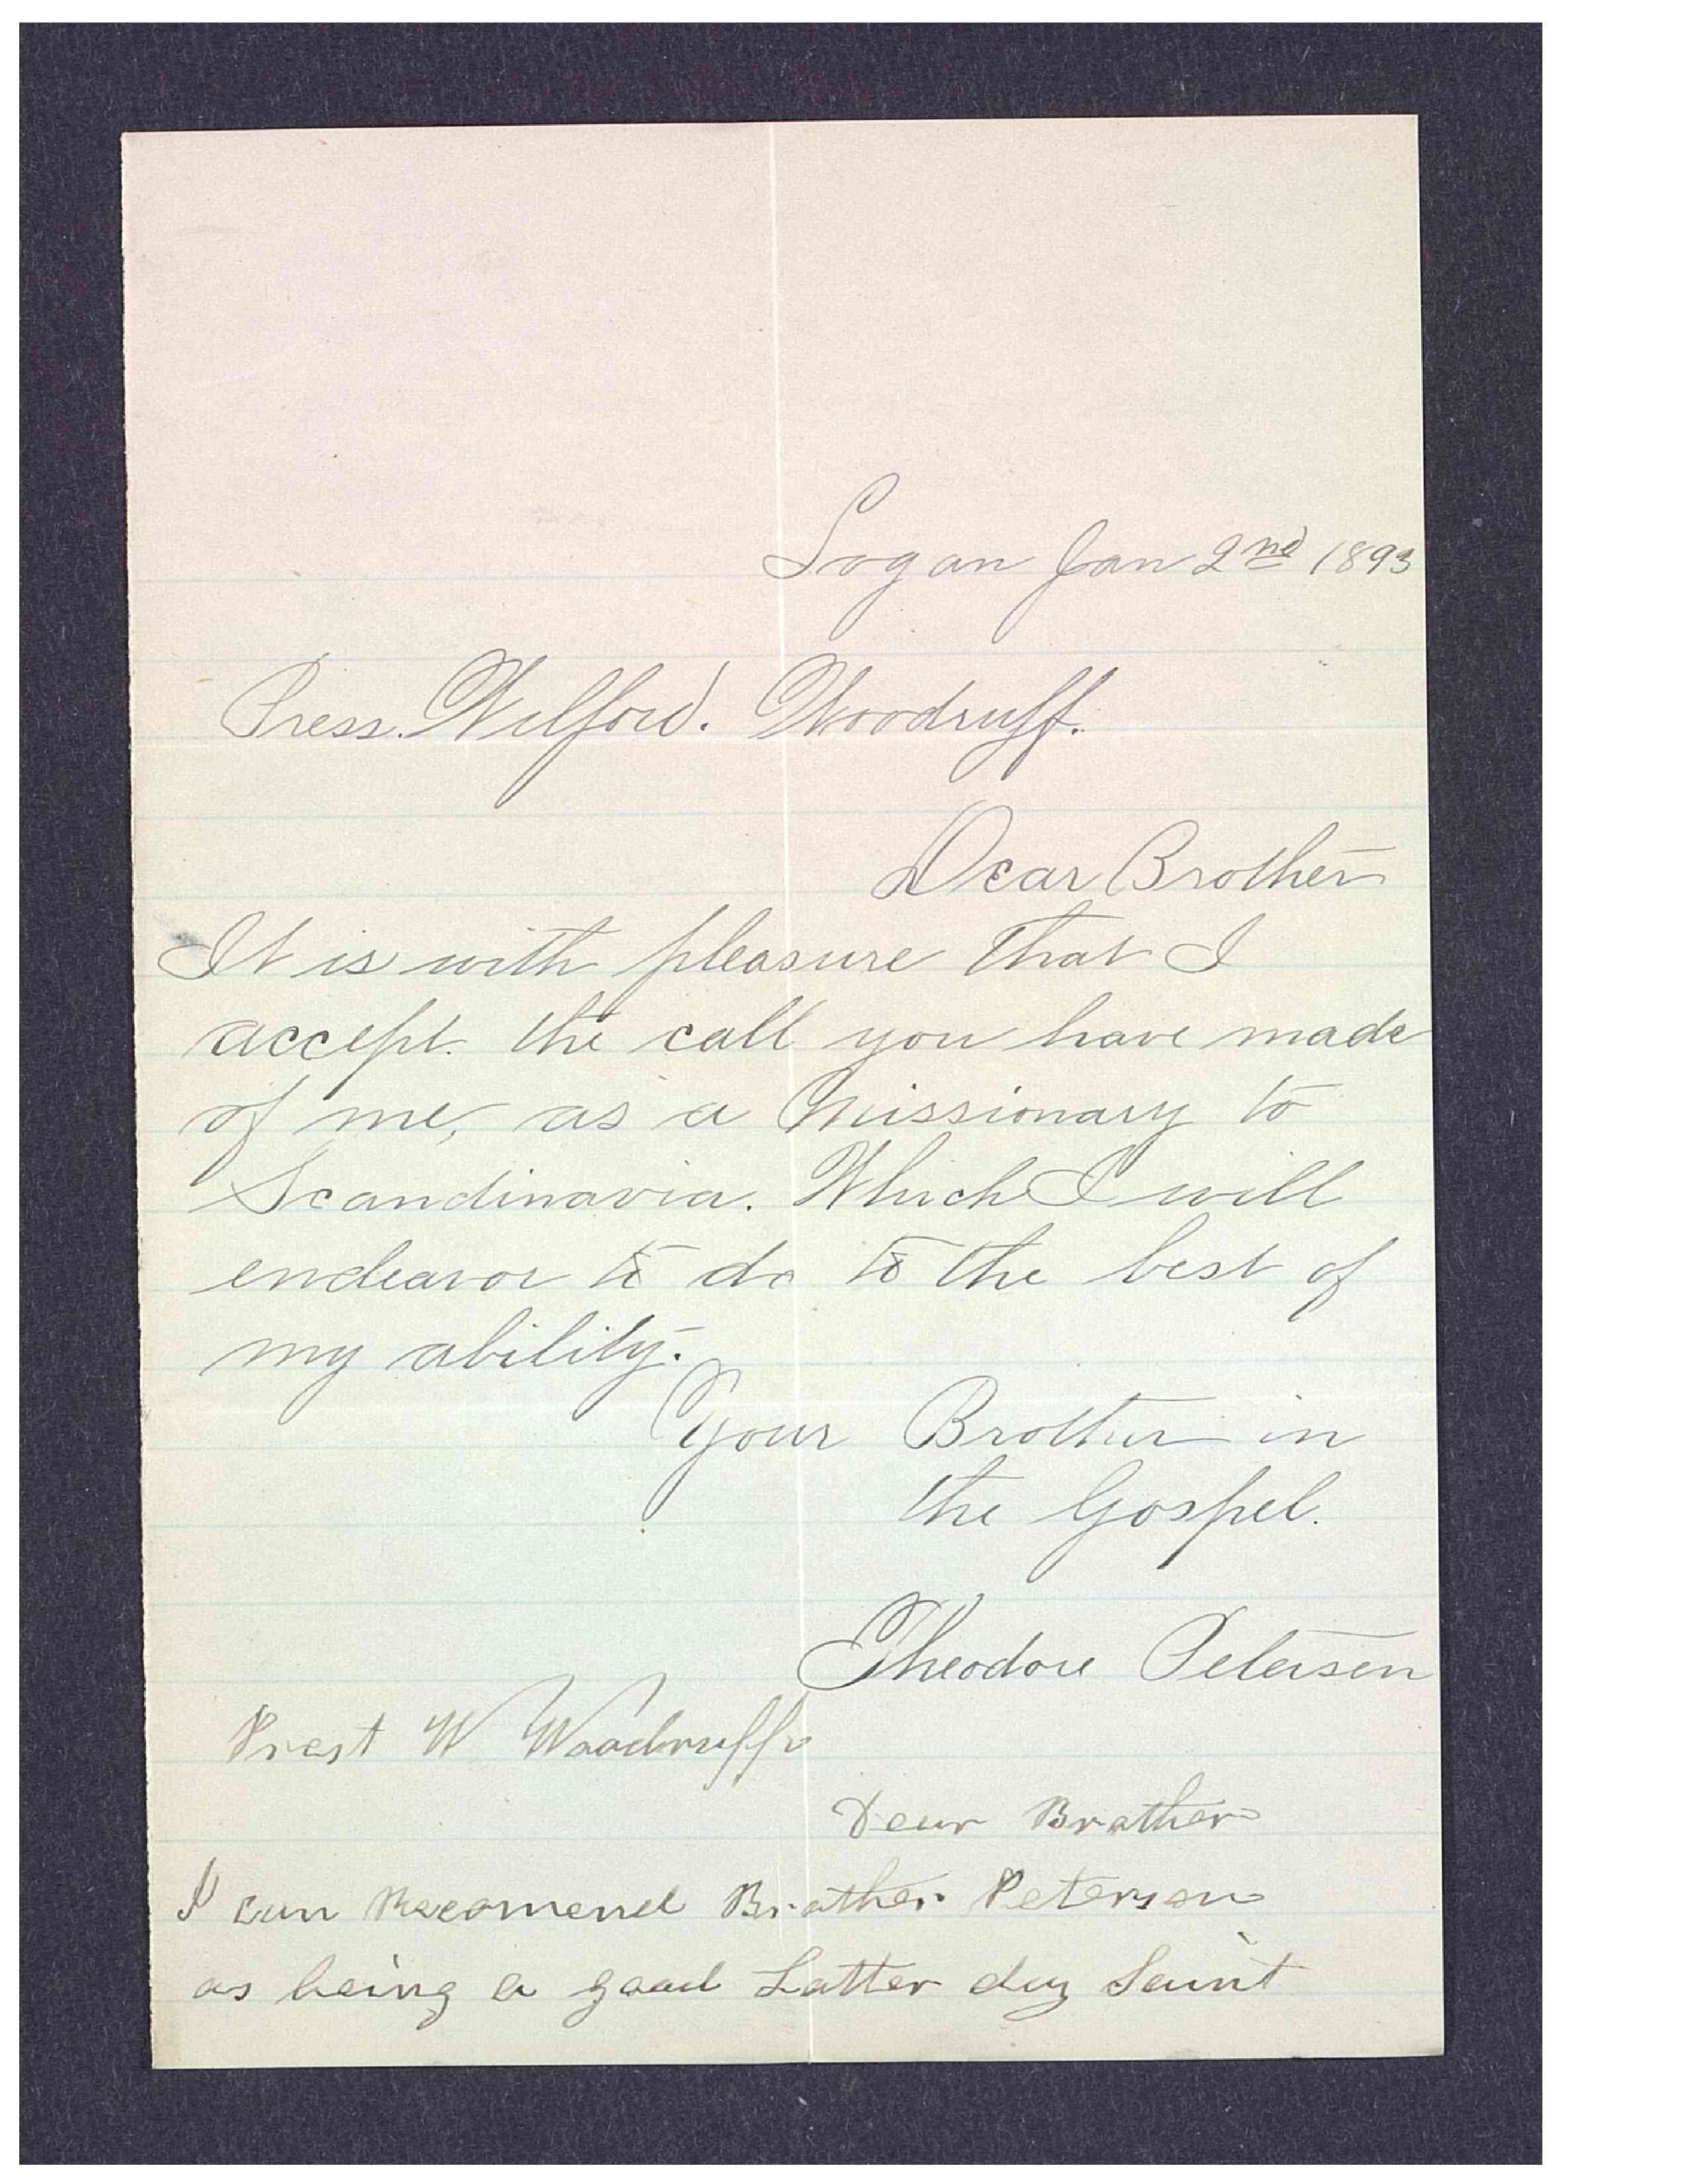 Logan Jan 2nd 1893
Press. Wilford. Woodruff.
Dear Brother
It is with pleasure that I
accept. the call you have made
of me, as a Missionary to
Scandinavia. Which I will
endeavor to do to the best of
my ability.
Your Brother in
the Gospel.
Theodore Petersen
Prest W Woodruff
Dear Brother
I can Recomend Brother Peterson
as being a good Latter day Saint